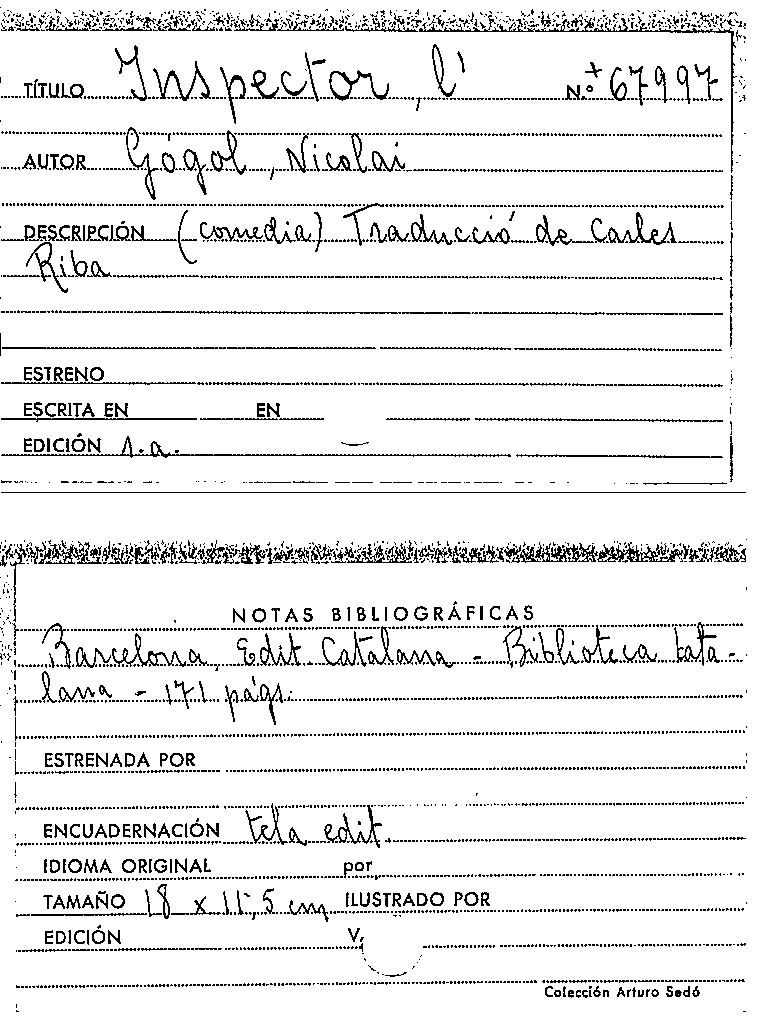 TÍTULO Inspector, l' N.º + 67997
AUTOR Gógol, Nicolai
DESCRIPCIÓN (comedia) Traducció de Carles
Riba
ESTRENO
ESCRITA EN EN
EDICIÓN s.a.
NOTAS BIBLIOGRÁFICAS
Barcelona, Edit. Catalana - Biblioteca Cata-
lana - 171 págs.
ESTRENADA POR
ENCUADERNACIÓN tela edit.
IDIOMA ORIGINAL por
TAMAÑO 18 x 11,5 cm ILUSTRADO POR
EDICIÓN V.
Colección Arturo Sedó